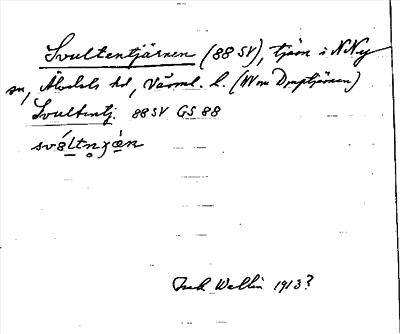 Svultentjärnen (88 SV), tjärn i N Ny
sn, Älvdals hd, Värml. l. (NV om Deptjärnen)
Svultentj. 88 SV GS 88
Wallin 1913?